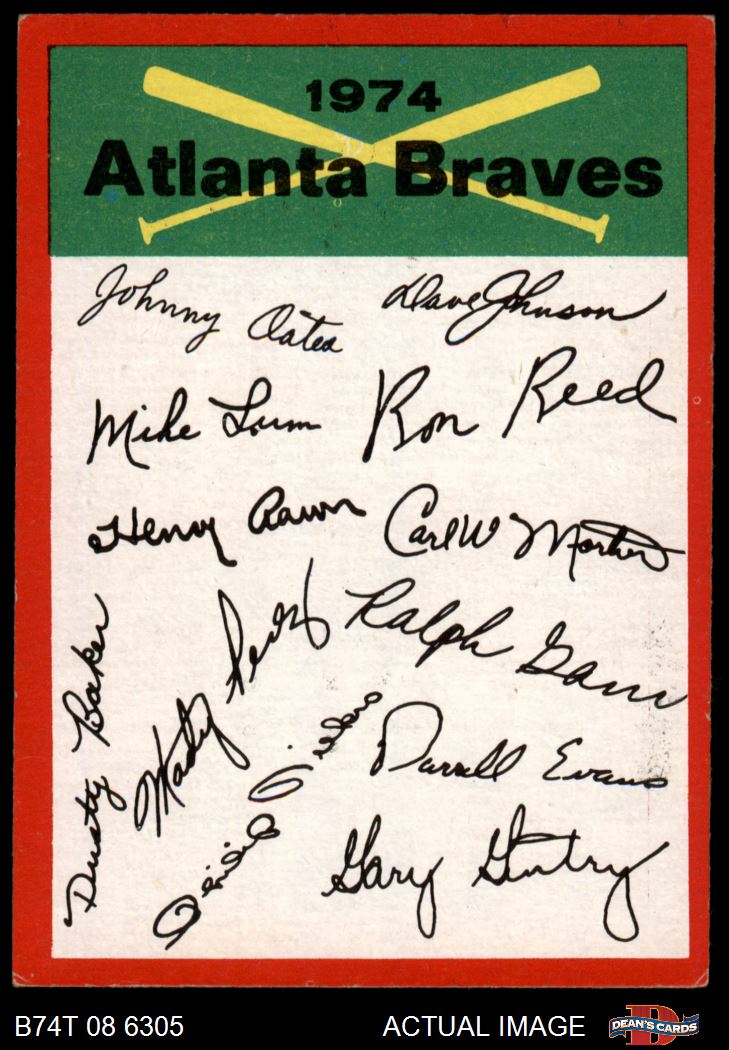 1974
Atlanta Braves
Johnny Oates
Dave Johnson
Mike Lum
Ron Reed
Henry Aaron
Carl W Morton
Ralph Garr
Dusty Baker
Marty Perez
Darrell Evans
Gary Gentry
B74T 08 6305
ACTUAL IMAGE
DEAN'S CARDS